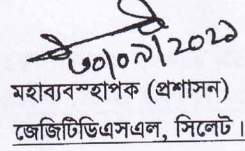 ৩০/০৯/2021
মহাব্যবস্হাপক (প্রশাসন)
জেজিটিডিএসএল, সিলেট।